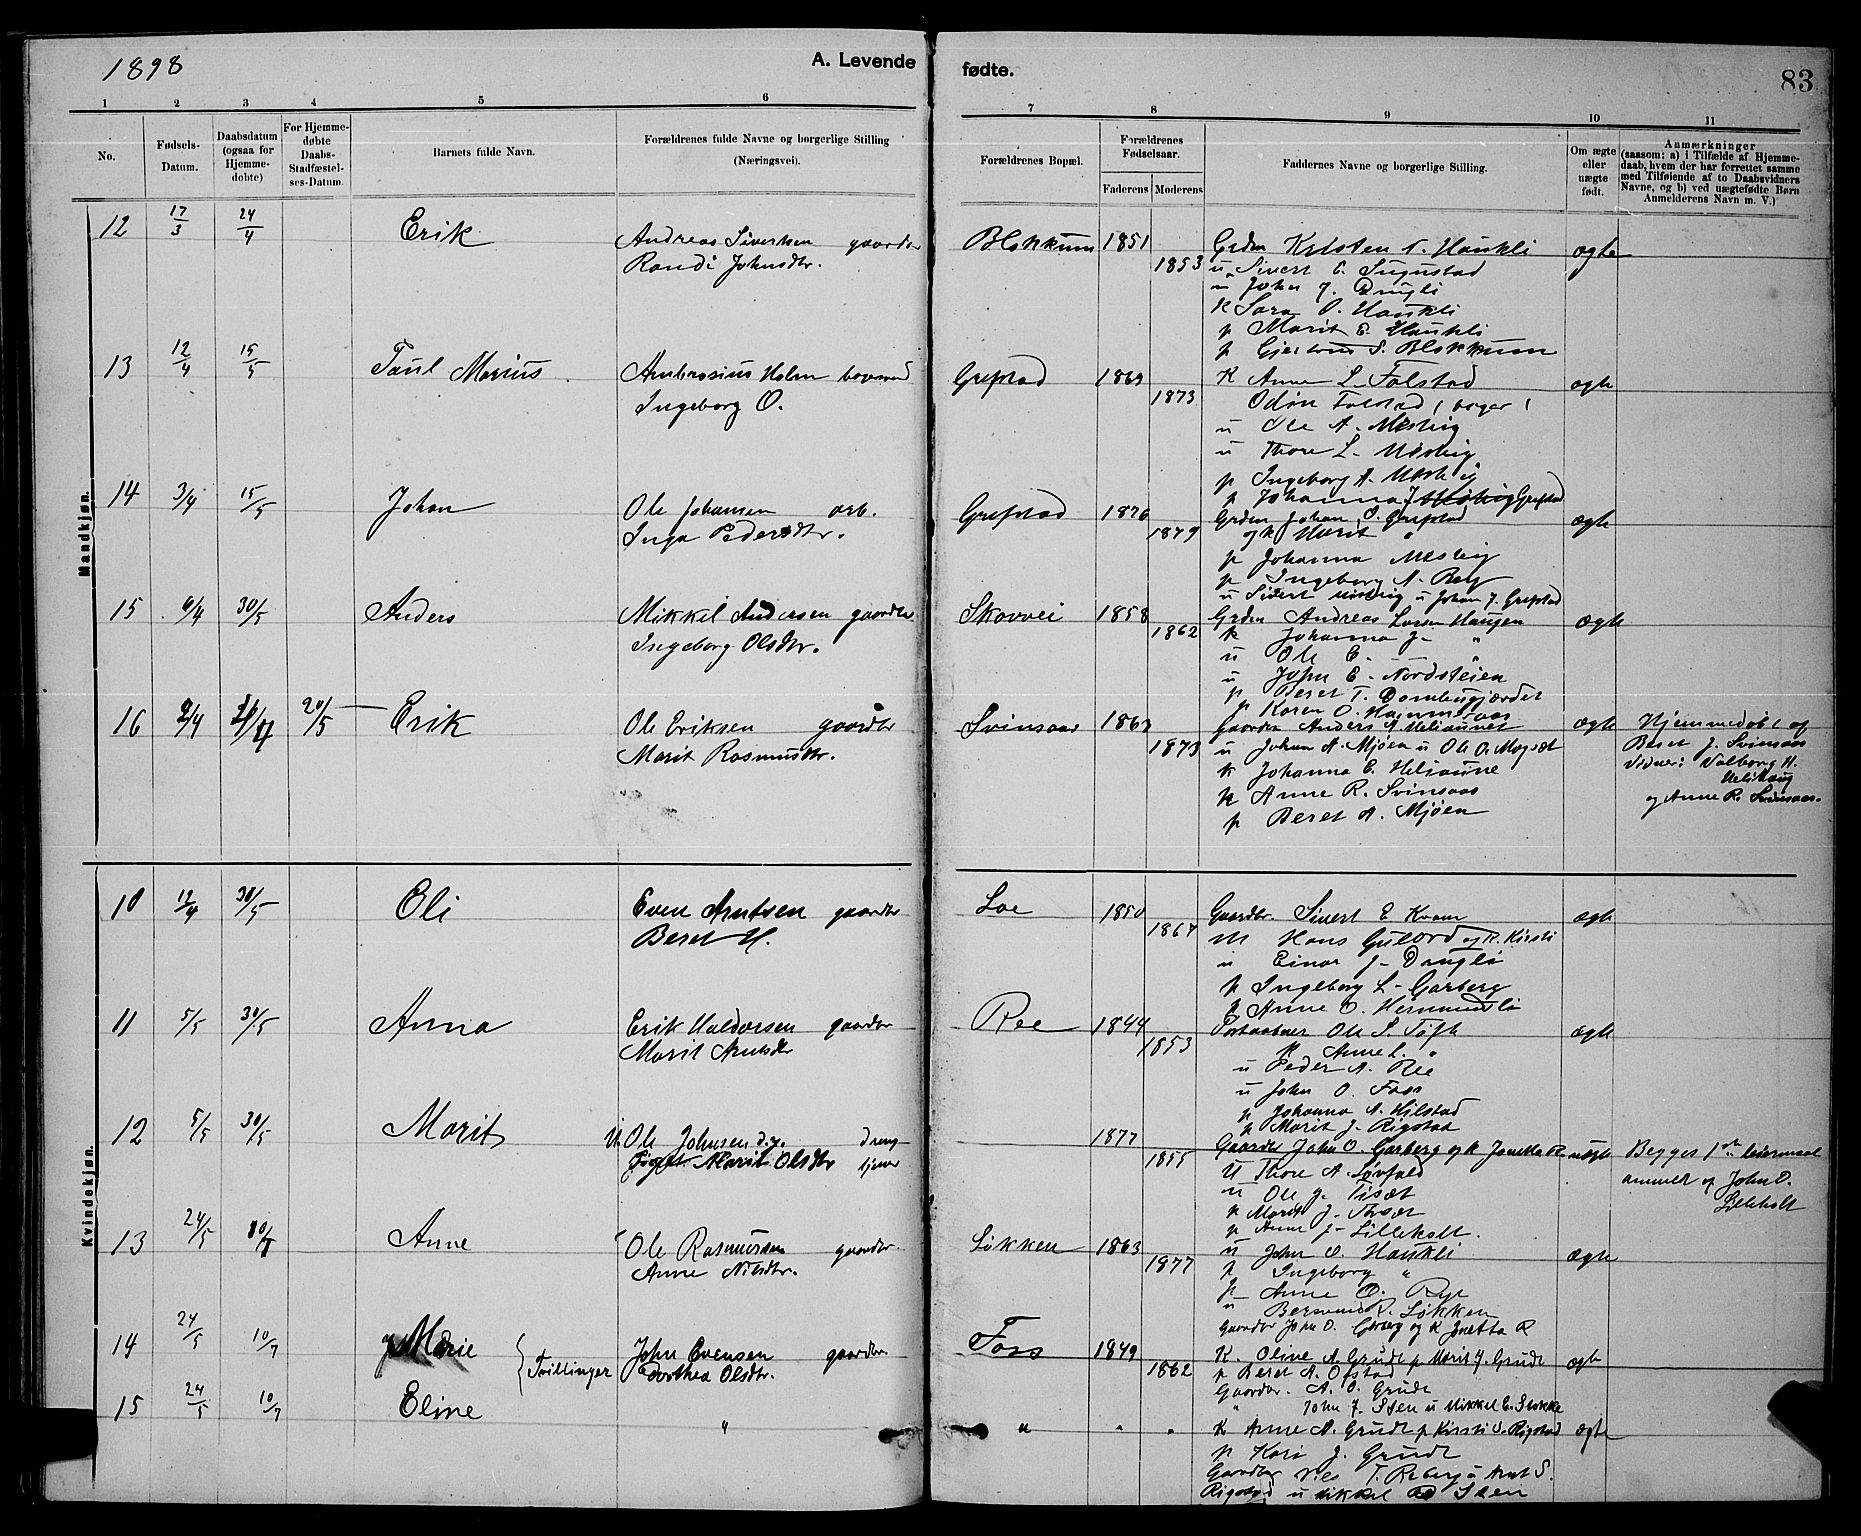 1898
A. Levende
fødte.
83
1 2 3 4 5 6 7 8 9 10 11
No.
Fødsels-Datum.
Daabsdatum (ogsaa for Hjemme-døbte)
For Hjemme-døbte Daabs-Stadfæstel-ses-Datum.
Barnets fulde Navn.
Forældrenes fulde Navne og borgerlige Stilling (Næringsvei).
Forældrenes Bopæl.
Forældrenes Fødselsaar.
Faderens Moderens
Faddernes Navne og borgerlige Stilling.
Om ægte eller uægte født.
Anmærkninger (saasom: a) i Tilfælde af Hjemme-daab, hvem der har forrettet samme med Tilføiende af to Daabsvidners Navne, og b) ved uægtefødte Børn Anmelderens Navn m. V.)
Mandkjøn.
12 17/3 24/4 Erik Andreas Sivertsen gaardbr Blokkum 1851 Grdm Kristen Haukli ægte
Randi Johnsdtr. 1853 u Sivert E.
u John J. Dragli
K Sara O. Haukli
p Marit E. Haukli
p S. Blokkum
13 12/4 15/5 Paul Marius Ambrosius Holm Grefstad 1869 K Anne L. Falstad ægte
Ingeborg O. 1873 Odin Falstad (bager)
u Ole A. Meslug
u Thore L.
p Ingeborg A.
p Johanna J. Grefstad
14 3/4 15/5 Johan Ole Johansen arb. Grefstad 1876 Grdm Johan O. Grefstad ægte
Inga Pedersdtr. 1879 og k Marit "
p Johanna
p Ingeborg A. Berg
u Sivert u Johan J. Grefstad
15 6/4 30/5 Anders Mikkel Andersen gaardbr Skovvei 1858 Grdm Andreas Larsen Haugen ægte
Ingeborg Olsdtr. 1862 k Johanna J. "
u Ole E. "
u John E. Nordsteien
p Beret T.
p Karen O.
16 2/4 20/5 Erik Ole Eriksen gaardbr Svinsaas 1863 Gaardbr Anders A. Heliaunet ægte Hjemmedøbt af
Marit Rasmusdtr. 1873 u Johan A. Mjøen u Ole O. Beret J. Svinsaas
k Johanna E. Heliaune Vidner: Valborg H.
k Anne R. Svinsaas
p Beret A. Mjøen og Anne R. Svinsaas.
Kvindekjøn.
10 12/4 30/5 Eli Even Arntsen gaardbr Loe 1850 Gaardbr. Sivert E. Kvam ægte
Beret H. 1867 M Hans og K. Kirsti
u Einar J. Dragli
p Ingeborg L. Garberg
p Anne O.
11 5/5 30/5 Anna Erik Haldorsen gaardbr Ree 1844 Postaabner Ole S. Toft ægte
Marit Arntsdtr 1853 K Anne L. "
u Peder A. Ree
u John O. Foss
p Johanna A. Hilstad
p Marit J. Rigstad
12 5/5 30/5 Marit U. Ole Johnsen d.y. dreng 1877 Gaardbr John O. Garberg og k Jonetta R uægte Begges 1ste leiermaal
Pigen Marit Olsdtr tjener 1855 u Thore A. anmeldt af John O.
u Ole J. Lilleholt
p Marit J.
p Anne J. Lilleholt.
13 24/5 10/7 Anne Ole Rasmussen gaardbr. Løkken 1863 u John O. Haukli ægte
Anne Nilsdtr. 1877 p Ingeborg "
p Anne O. Rye
u Bersvend R. Løkken
Gaardbr John O. Garberg og K Jnetta R
14 24/5 10/7 Marie Tvillinger John Evensen gaardbr. Foss 1849 K. Oline A. Grudt p Marit J. Grudt ægte
Dorthea Olsdtr. 1862 p Beret A. Ofstad
Gaardbr. A. O. Grudt
" John J. Sten u Mikkel E. Stokke
15 24/5 10/7 Eline " " " " K Anne A. Grudt p Kirsti O. Rigstad ægte
p Kari J. Grudt
Gaardbr Nils T. u Arnt S.
Rigstad u Mikkel Sten